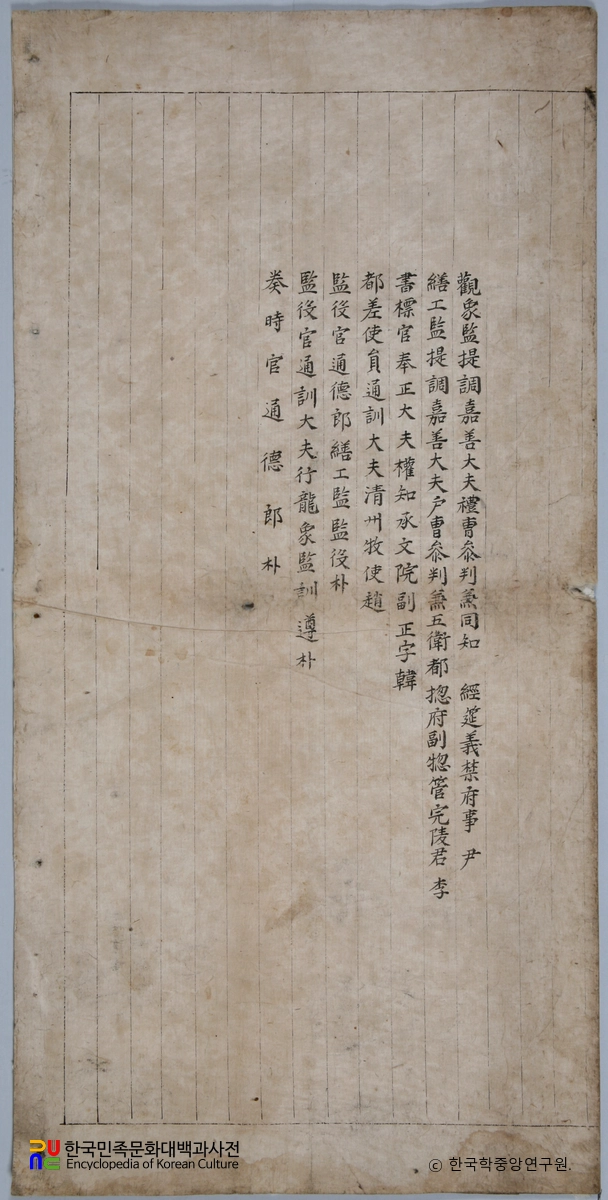 觀象監提調嘉善大夫禮曹叅判兼同知 經筵義禁府事 尹
繕工監提調嘉善大夫戶曹叅判兼五衛都揔府副揔管完陵君 李
書標官奉正大夫權知承文院副正字韓
都差使貟通訓大夫清州牧使趙
監役官通德郎繕工監監役朴
監役官通訓大夫行龍象監訓 導朴
奏時官通德郎朴
한국민족문화대백과사전
Encyclopedia of Korean Culture
ⓒ 한국학중앙연구원.